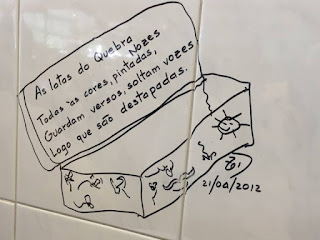 As latas do Quebra
Nozes
Todas às cores, pintadas,
Guardam versos, soltam vozes
Logo que são destapadas.
21/04/2012